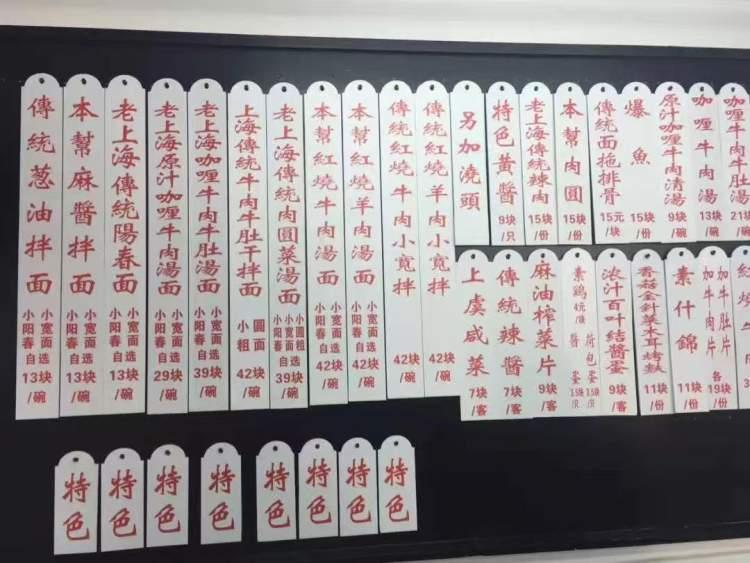 傳統葱油拌面
小宽面
小阳春自选
13块/碗
本幫麻醬拌面
小宽面
小阳春自选
13块/碗
老上海傳統陽春面
小宽面
小阳春自选
13块/碗
老上海原汁咖喱牛肉湯面
小宽面
小阳春自选
29块/碗
老上海咖喱牛肉牛肚湯面
小宽面
小阳春自选
39块/碗
上海傳統牛肉牛肚干拌面
圓面
小粗
42块/碗
老上海傳統肉圓菜湯面
小圆粗
小宽面
小阳春自选
39块/碗
本幫紅燒牛肉湯面
小宽面
小阳春自选
42块/碗
本幫紅燒羊肉湯面
小宽面
小阳春自选
42块/碗
傳統紅燒牛肉小寬拌
42块/碗
傳統紅燒羊肉小寬拌
42块/碗
另加澆頭
特色黃醬
9块/只
老上海傳統辣肉
15块/份
本幫肉圓
15块/份
傳統面拖排骨
15元/块
爆魚
15块/份
原汁咖喱牛肉清湯
9块/碗
咖喱牛肉湯
13块/碗
咖喱牛肉牛肚湯
21块/碗
上虞咸菜
7块/客
傳統辣醬
7块/客
麻油榨菜片
9块/客
素鷄
醬蛋
荷包蛋
浓汁百叶结醬蛋
9块/客
香菇金針菜木耳烤麩
11块/份
素什錦
11块/份
加牛肚片
加牛肉片
各19块/份
特色
特色
特色
特色
特色
特色
特色
特色